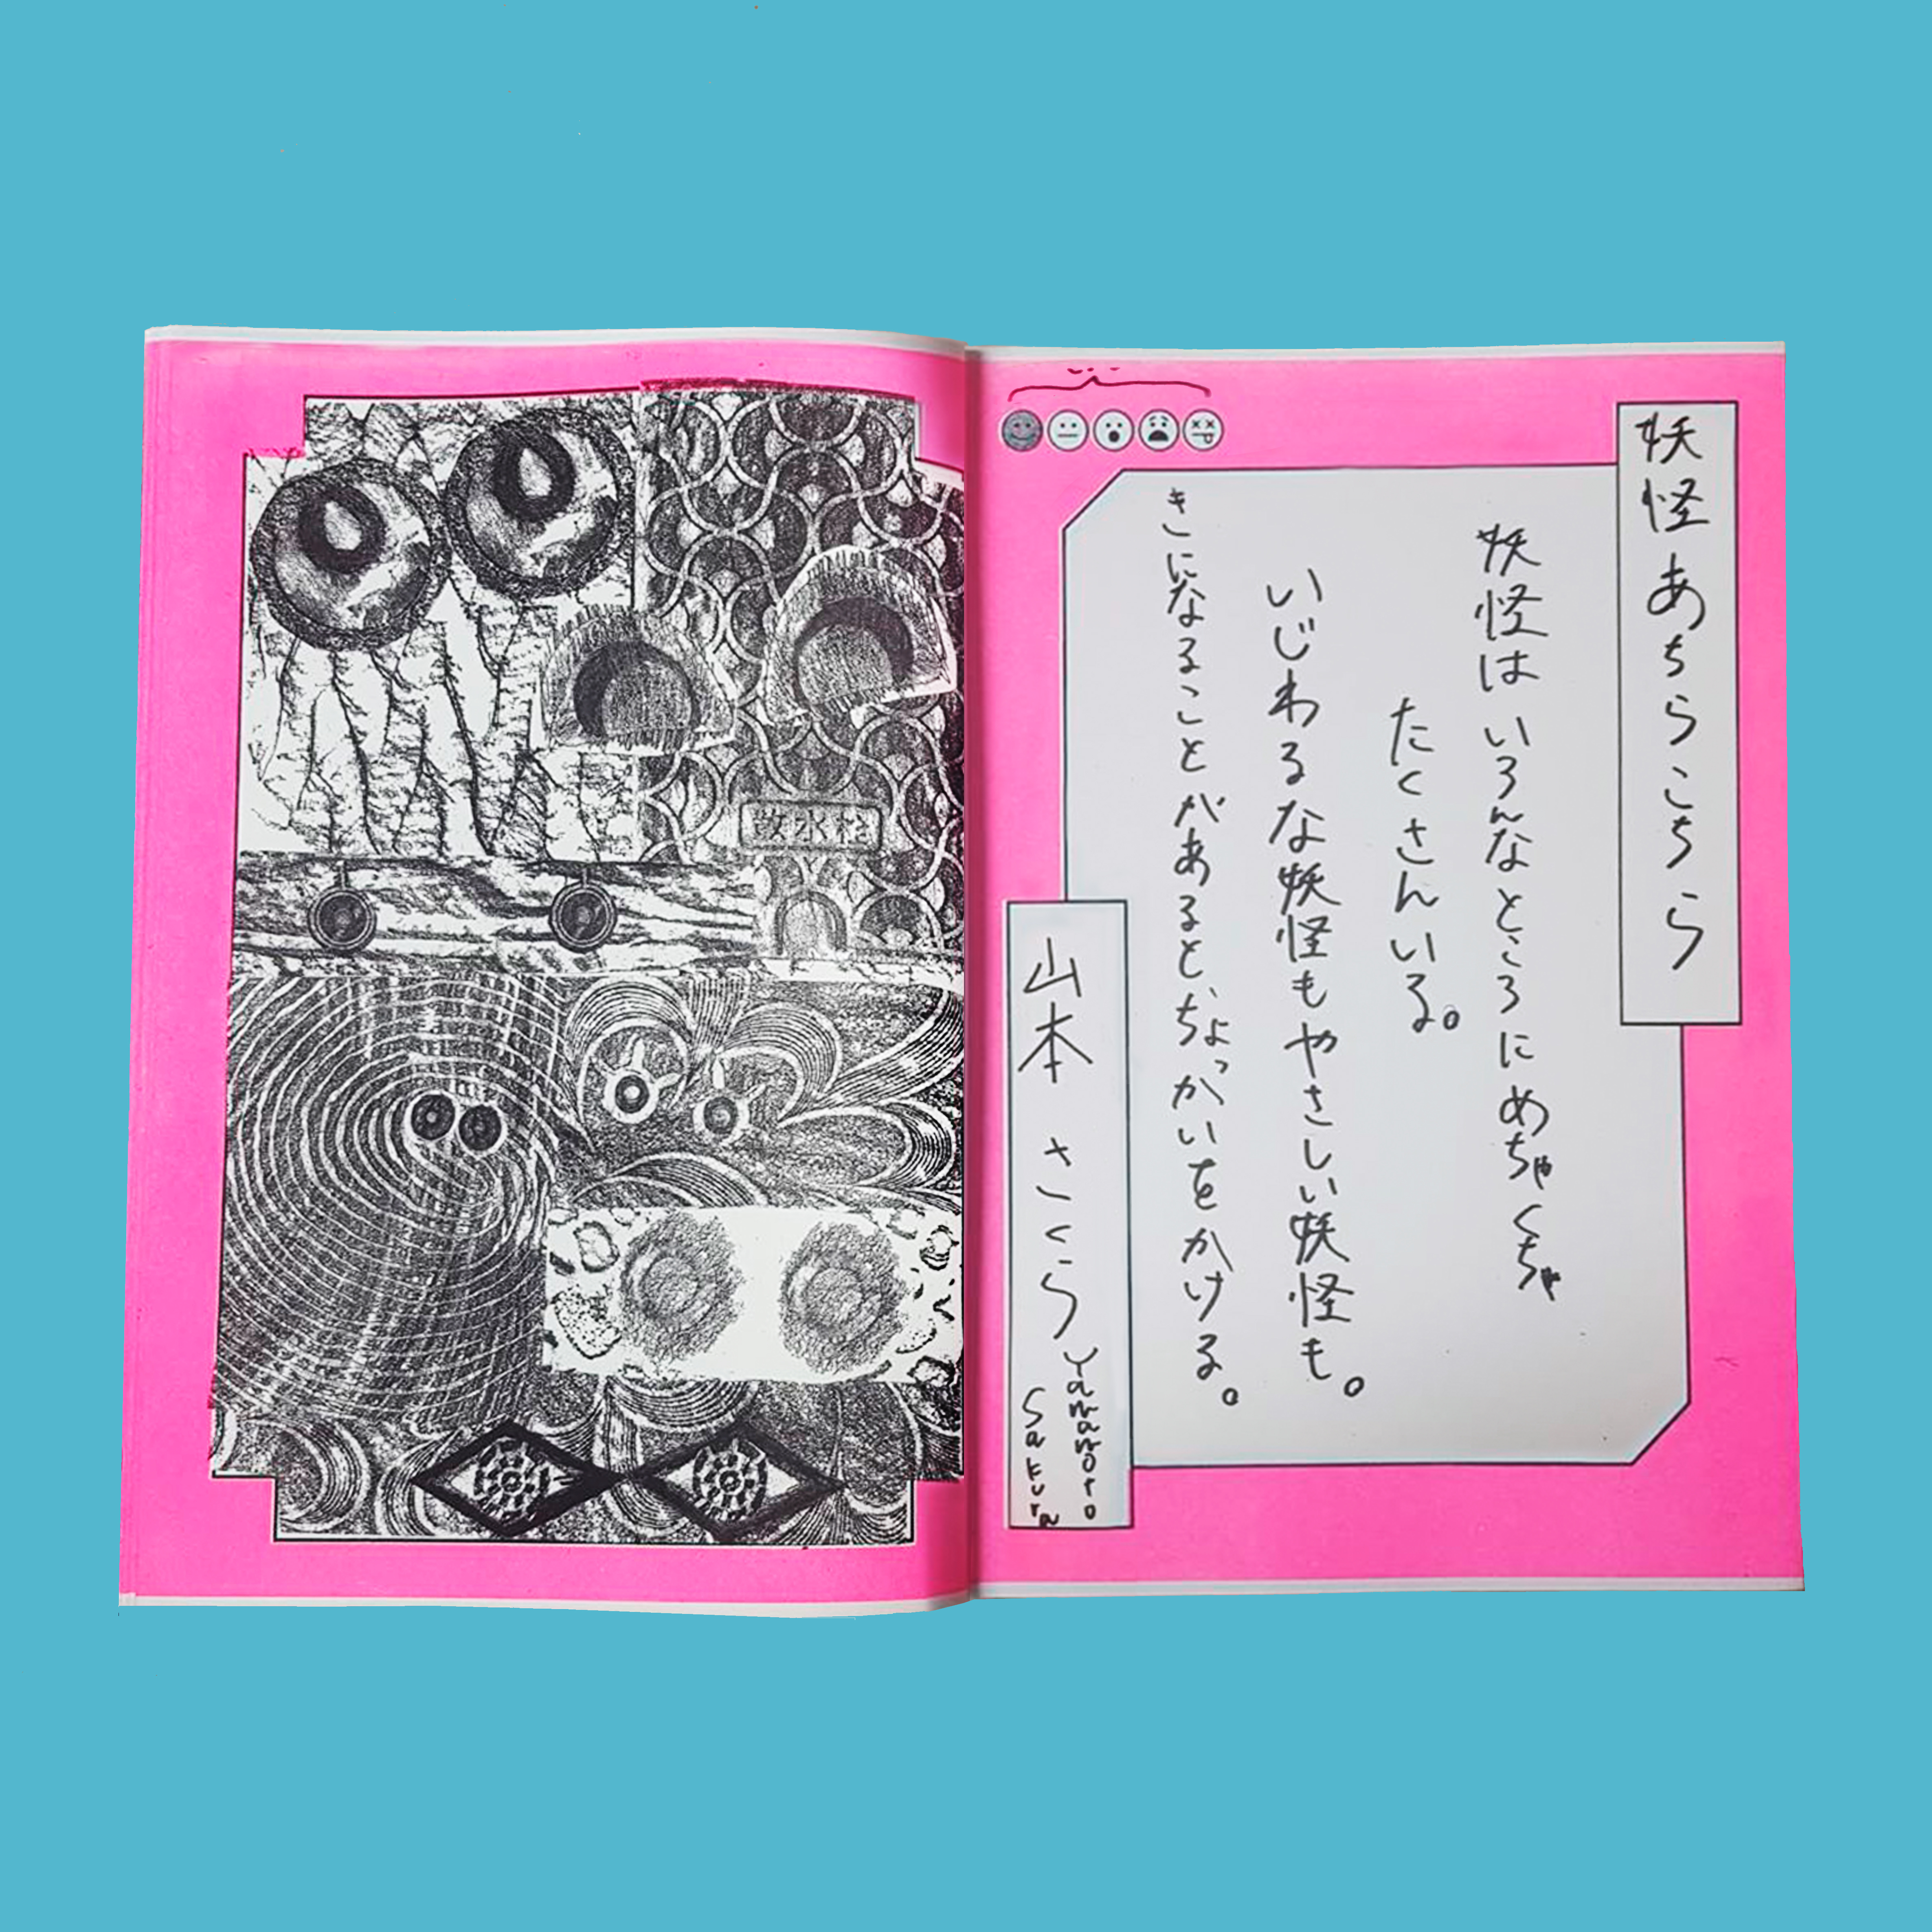 妖怪あちらこちら
妖怪はいろんなところにめちゃくちゃ
たくさんいる。
いじわるな妖怪もやさしい妖怪も。
きになることがあると、ちょっかいをかける。
山本さくら
Yamamoto
Sakura
散水栓